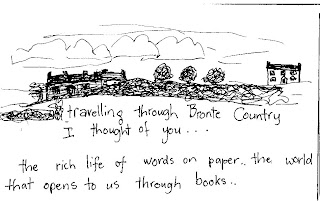 travelling through Bronte Country
I thought of you...
the rich life of words on paper.. the world
that opens to us through books..